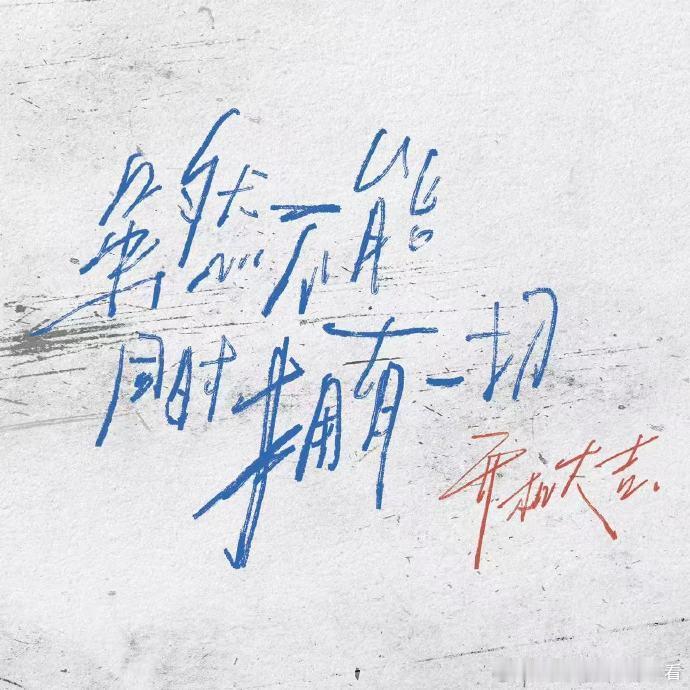 虽然不能
同时拥有一切
开机大吉
看